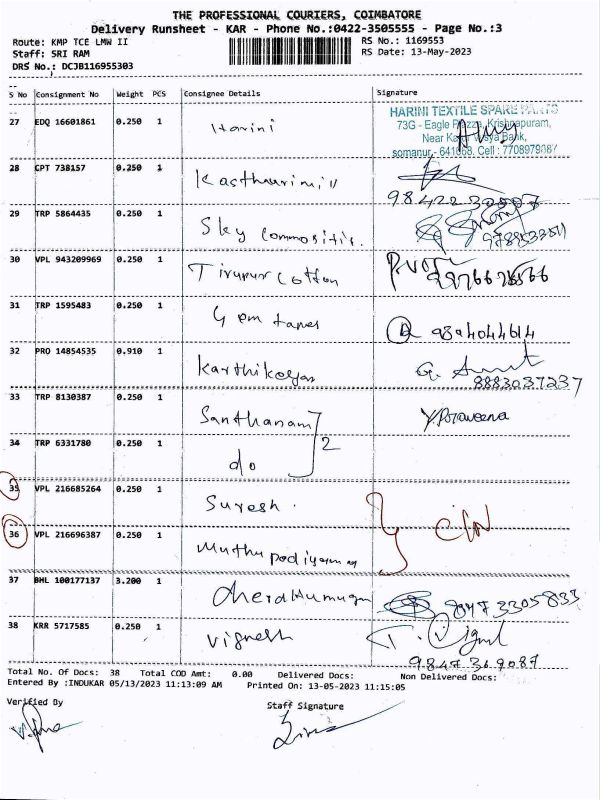 THE PROFESSIONAL COURIERS, COIMBATORE
Delivery Runsheet - KAR - Phone No.:0422-3505555 - Page No.:3
Route: KMP TCE LMW II RS No.: 1169553
Staff: SRI RAM RS Date: 13-May-2023
DRS No.: DCJB116955303
S No Consignment No Weight PCS Consignee Details Signature
27 EDQ 16601861 0.250 1 Harini
HARINI TEXTILE SPARE PARTS
73G - Eagle Plazza, Krishnapuram,
Near Karur Vysya Bank,
somanur - 641668. Cell : 7708979087
28 CPT 738157 0.250 1 Kasthurimill
29 TRP 5864435 0.250 1 Sky
30 VPL 943209969 0.250 1 Tirupur Cotton
31 TRP 1595483 0.250 1 Gem tapes 9894044614
32 PRO 14854535 0.910 1 Karthikeyan G.
8883037237
33 TRP 8130387 0.250 1 Santhanam Y. Praveena
34 TRP 6331780 0.250 1 do 2
35 VPL 216685264 0.250 1 Suresh.
36 VPL 216696387 0.250 1
37 BHL 100177137 3.200 1 8473305833
38 KRR 5717585 0.250 1 Vignesh T.
9847369087
Total No. Of Docs: 38 Total COD Amt: 0.00 Delivered Docs: Non Delivered Docs:
Entered By :INDUKAR 05/13/2023 11:13:09 AM Printed On: 13-05-2023 11:15:05
Verified By Staff Signature